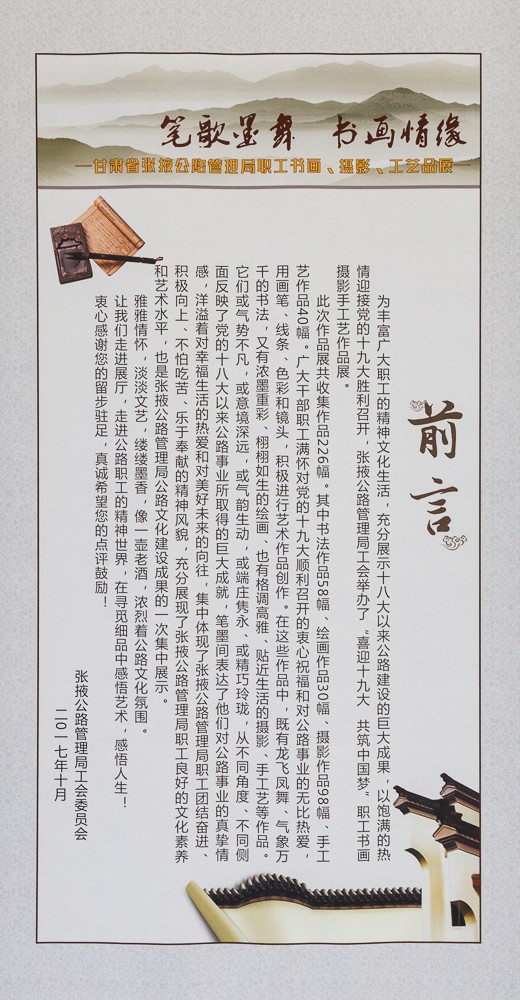 笔歌墨舞　书画情缘
—甘肃省张掖公路管理局职工书画、摄影、工艺品展
前言
为丰富广大职工的精神文化生活，充分展示十八大以来公路建设的巨大成果，以饱满的热
情迎接党的十九大胜利召开，张掖公路管理局工会举办了“喜迎十九大　共筑中国梦”职工书画
摄影手工艺作品展。
此次作品展共收集作品226幅。其中书法作品58幅、绘画作品30幅、摄影作品98幅、手工
艺作品40幅。广大干部职工满怀对党的十九大顺利召开的衷心祝福和对公路事业的无比热爱，
用画笔、线条、色彩和镜头，积极进行艺术作品创作。在这些作品中，既有龙飞凤舞、气象万
千的书法，又有浓墨重彩、栩栩如生的绘画、也有格调高雅、贴近生活的摄影、手工艺等作品。
它们或气势不凡，或意境深远，或气韵生动，或端庄隽永、或精巧玲珑，从不同角度、不同侧
面反映了党的十八大以来公路事业所取得的巨大成就，笔墨间表达了他们对公路事业的真挚情
感，洋溢着对幸福生活的热爱和对美好未来的向往，集中体现了张掖公路管理局职工团结奋进、
积极向上、不怕吃苦、乐于奉献的精神风貌，充分展现了张掖公路管理局职工良好的文化素养
和艺术水平，也是张掖公路管理局公路文化建设成果的一次集中展示。
雅雅情怀，淡淡文艺，缕缕墨香，像一壶老酒，浓烈着公路文化氛围。
让我们走进展厅，走进公路职工的精神世界，在寻觅细品中感悟艺术，感悟人生！
衷心感谢您的留步驻足，真诚希望您的点评鼓励！
张掖公路管理局工会委员会
二〇一七年十月